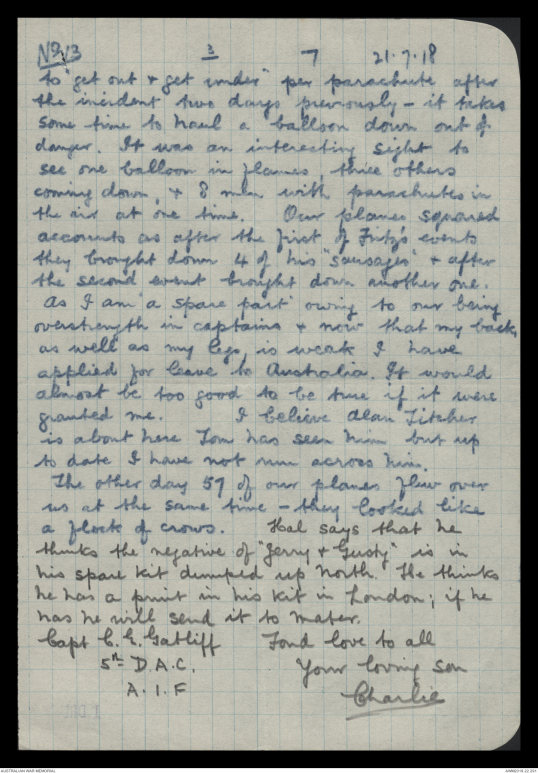 No 13 3 7 21.7.18
to "get out & get under" per parachute after
the incident two days previously - it takes
some time to haul a balloon down out of
danger. It was an interesting sight to
see one balloon in flames, three others
coming down, & 8 men with parachutes in
the air at one time. Our planes squared
accounts as after the first of Fritz's events
they brought down 4 of his "sausages" & after
the second event brought down another one.
As I am a spare part owing to our being
overstrength in captains & now that my back,
as well as my legs, is weak I have
applied for leave to Australia. It would
almost be too good to be true if it were
granted me. I believe Alan Fitcher
is about here Tom has seen him but up
to date I have not run across him.
The other day 59 of our planes flew over
us at the same time - they looked like
a flock of crows. Hal says that he
thinks the negative of "Jerry & Gusty" is in
his spare kit dumped up North. He thinks
he has a print in his kit in London; if he
has he will send it to Mater.
Capt C. E. Gatliff Fond love to all
5th D.A.C. Your loving son
A.I.F Charlie
AUSTRALIAN WAR MEMORIAL